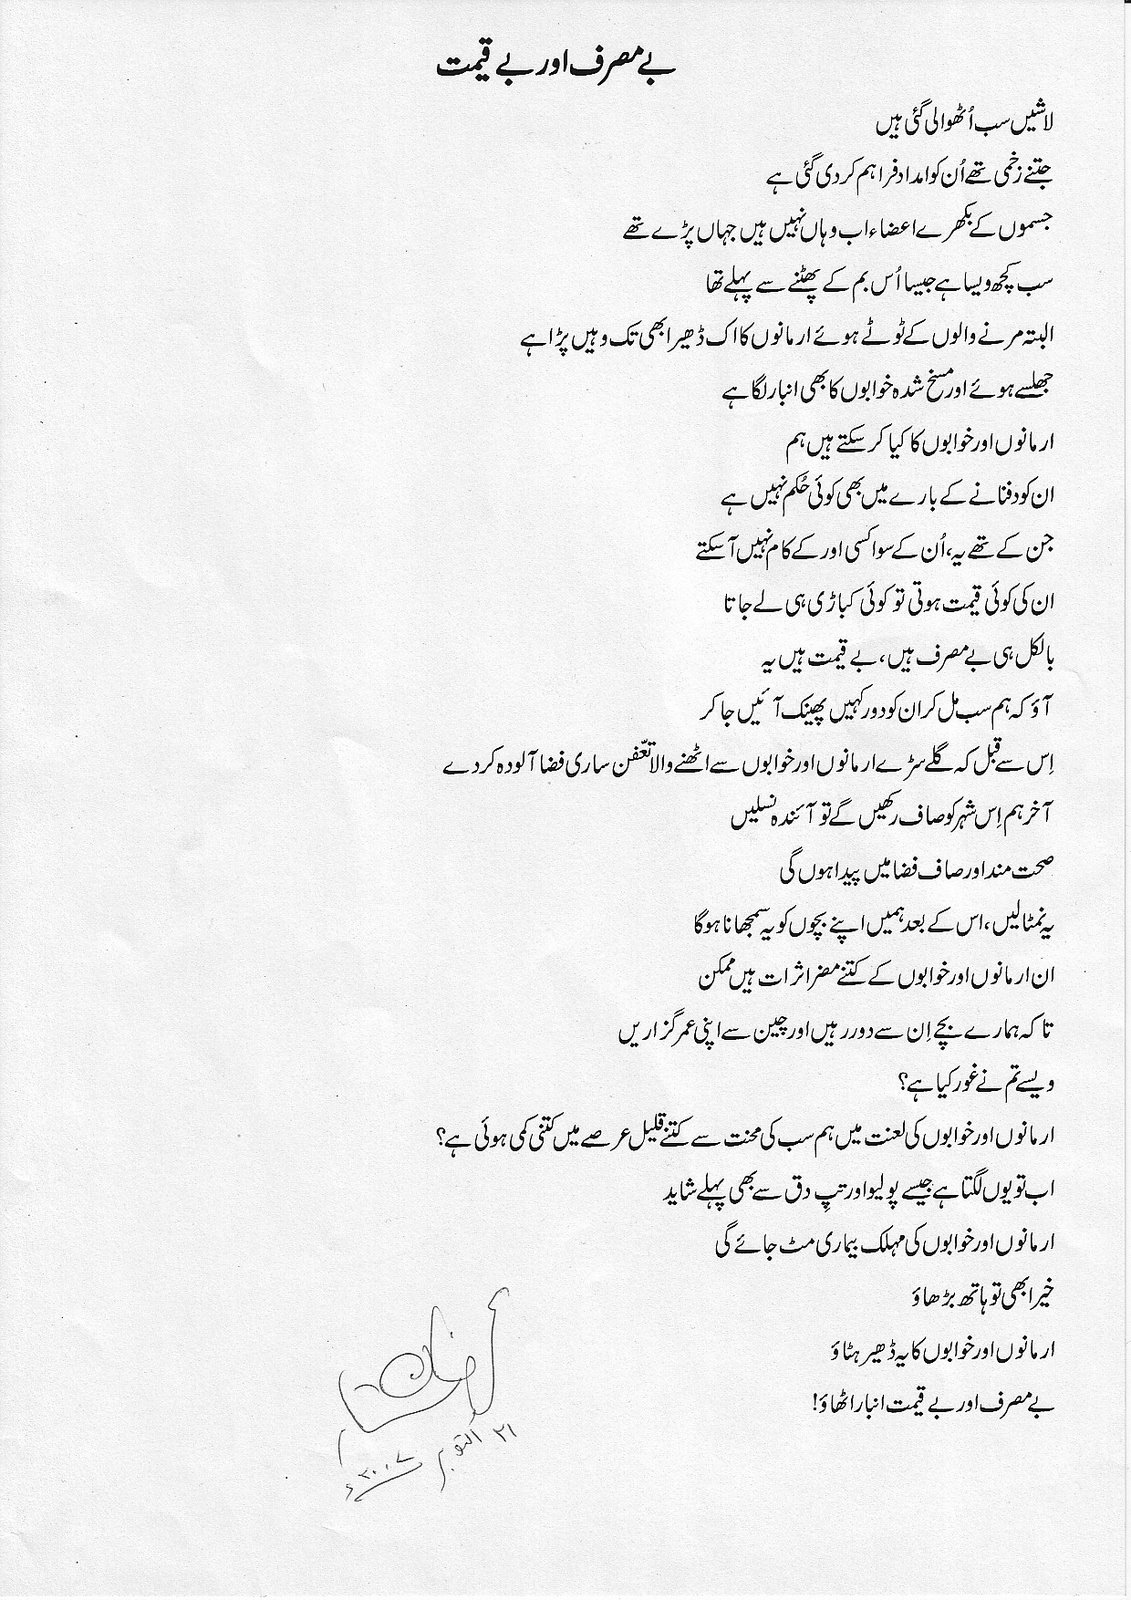 بے مصرف اور بے قیمت
لاشیں سب اُٹھوالی گئی ہیں
جتنے زخمی تھے اُن کو امداد فراہم کردی گئی ہے
جسموں کے بکھرے اعضاء اب وہاں نہیں ہیں جہاں پڑے تھے
سب کچھ ویسا ہے جیسا اُس بم کے پھٹنے سے پہلے تھا
البتہ مرنے والوں کے ٹوٹے ہوئے ارمانوں کا اک ڈھیر ابھی تک وہیں پڑا ہے
جھلسے ہوئے اور مسخ شدہ خوابوں کا بھی انبار لگا ہے
ارمانوں اور خوابوں کا کیا کرسکتے ہیں ہم
ان کو دفنانے کے بارے میں بھی کوئی حُکم نہیں ہے
جن کے تھے یہ، اُن کے سوا کسی اور کے کام نہیں آسکتے
ان کی کوئی قیمت ہوتی تو کوئی کباڑی ہی لے جاتا
بالکل ہی بے مصرف ہیں، بے قیمت ہیں یہ
آؤ کہ ہم سب مل کر ان کو دور کہیں پھینک آئیں جاکر
اِس سے قبل کہ گلے سڑے ارمانوں اور خوابوں سے اٹھنے والا تعّفن ساری فضا آلودہ کردے
آخر ہم اِس شہر کو صاف رکھیں گے تو آئندہ نسلیں
صحت مند اور صاف فضا میں پیدا ہوں گی
یہ نمٹالیں، اس کے بعد ہمیں اپنے بچوں کو یہ سمجھانا ہوگا
ان ارمانوں اور خوابوں کے کتنے مضر اثرات ہیں ممکن
تاکہ ہمارے بچے اِن سے دور رہیں اور چین سے اپنی عمر گزاریں
ویسے تم نے غور کیا ہے؟
ارمانوں اور خوابوں کی لعنت میں ہم سب کی محنت سے کتنے قلیل عرصے میں کتنی کمی ہوئی ہے؟
اب تو یوں لگتا ہے جیسے پولیو اور تپِ دق سے بھی پہلے شاید
ارمانوں اور خوابوں کی مہلک بیماری مٹ جائے گی
خیر ابھی تو ہاتھ بڑھاؤ
ارمانوں اور خوابوں کا یہ ڈھیر ہٹاؤ
بے مصرف اور بے قیمت انبار اٹھاؤ!
۲۱ اکتوبر ۲۰۰۷ء